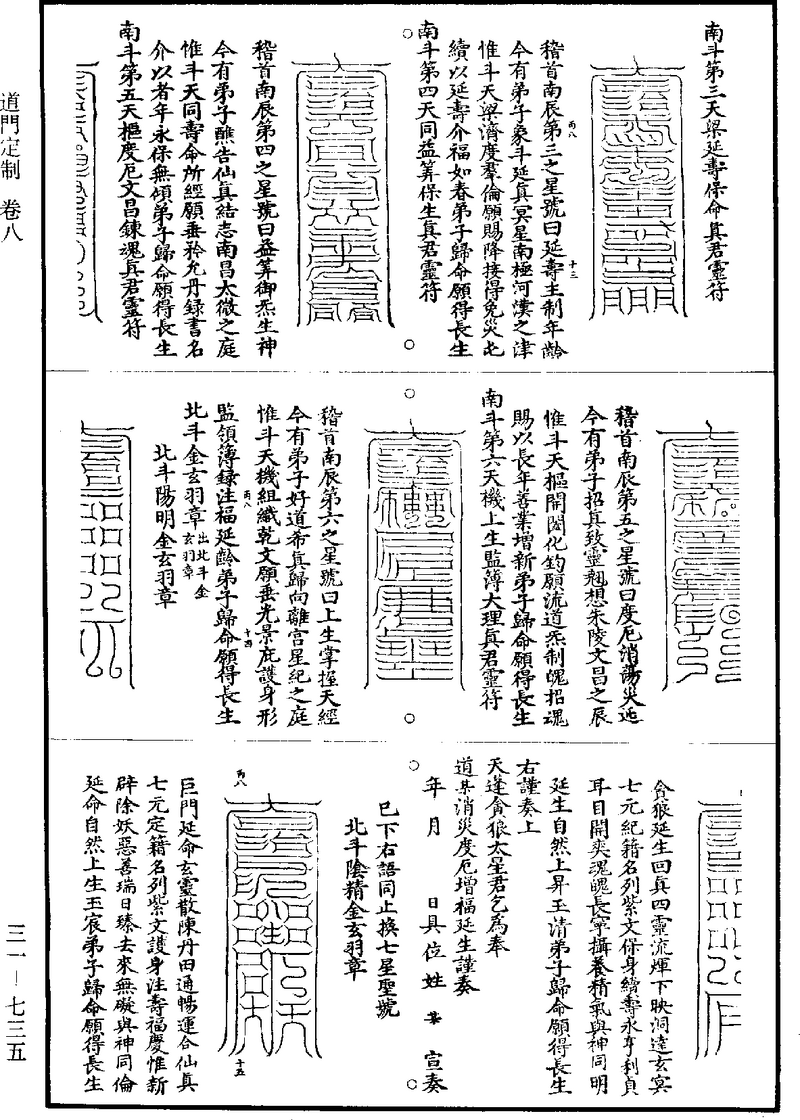 南斗第三天梁延壽保命真君靈符
稽首南辰第三之星號曰延壽主制年齡
今有弟子象斗延真冥星南極河漢之津
惟斗天梁濟度羣倫願賜降接得免災屯
續以延壽介福如春弟子歸命願得長生
南斗第四天同益筭保生真君靈符
稽首南辰第四之星號曰益筭御炁生神
今有弟子醮告仙真結志南昌太微之庭
惟斗天同壽命所經願垂矜允丹錄書名
介以耆年永保無傾弟子歸命願得長生
南斗第五天樞度厄文昌鍊魂真君靈符
稽首南辰第五之星號曰度厄消蕩災迍
今有弟子招真致靈翹想朱陵文昌之辰
惟斗天樞開闔化鈞願流道炁制魄招魂
賜以長年善業增新弟子歸命願得長生
南斗第六天機上生監簿大理真君靈符
稽首南辰第六之星號曰上生掌握天經
今有弟子好道希真歸向離宮星紀之庭
惟斗天機組織乾文願垂光景庇護身形
監領簿錄注福延齡弟子歸命願得長生
北斗金玄羽章出北斗金玄羽章
北斗陽明金玄羽章
貪狼延生回真四靈流煇下映洞達玄冥
七元紀籍名列紫文脩身續壽永亨利貞
耳目開爽魂魄長寧攝養精氣與神同明
延生自然上昇玉清弟子歸命願得長生
右謹奏上
天蓬貪狼太星君乞為奉
道某消災度厄增福延生謹奏
年 月 日具位姓 某 宣奏
已下右語同止換七星聖號
北斗陰精金玄羽章
巨門延命玄靈散陳丹田通暢運合仙真
七元定籍名列紫文護身注壽福慶惟新
辟除妖惡善瑞日臻去來無礙與神同倫
延命自然上生玉宸弟子歸命願得長生
丙八
十三
丙八
十四
丙八
十五
道門定制 卷八
三一—七三五